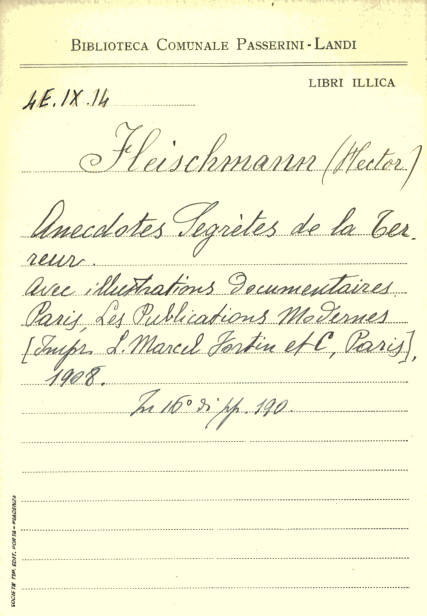 BIBLIOTECA COMUNALE PASSERINI-LANDI
LIBRI ILLICA
4E.IX.14
Fleischmann (Hector)
Anecdotes Segrètes de la Ter-
reur.
avec illustrations documentaires
Paris, Les Publications Modernes
[Impr. L. Marcel Fortin et C, Paris],
1908.
In 16° di pp. 190.
SOCIETÀ TIP. EDIT. PORTA - PIACENZA